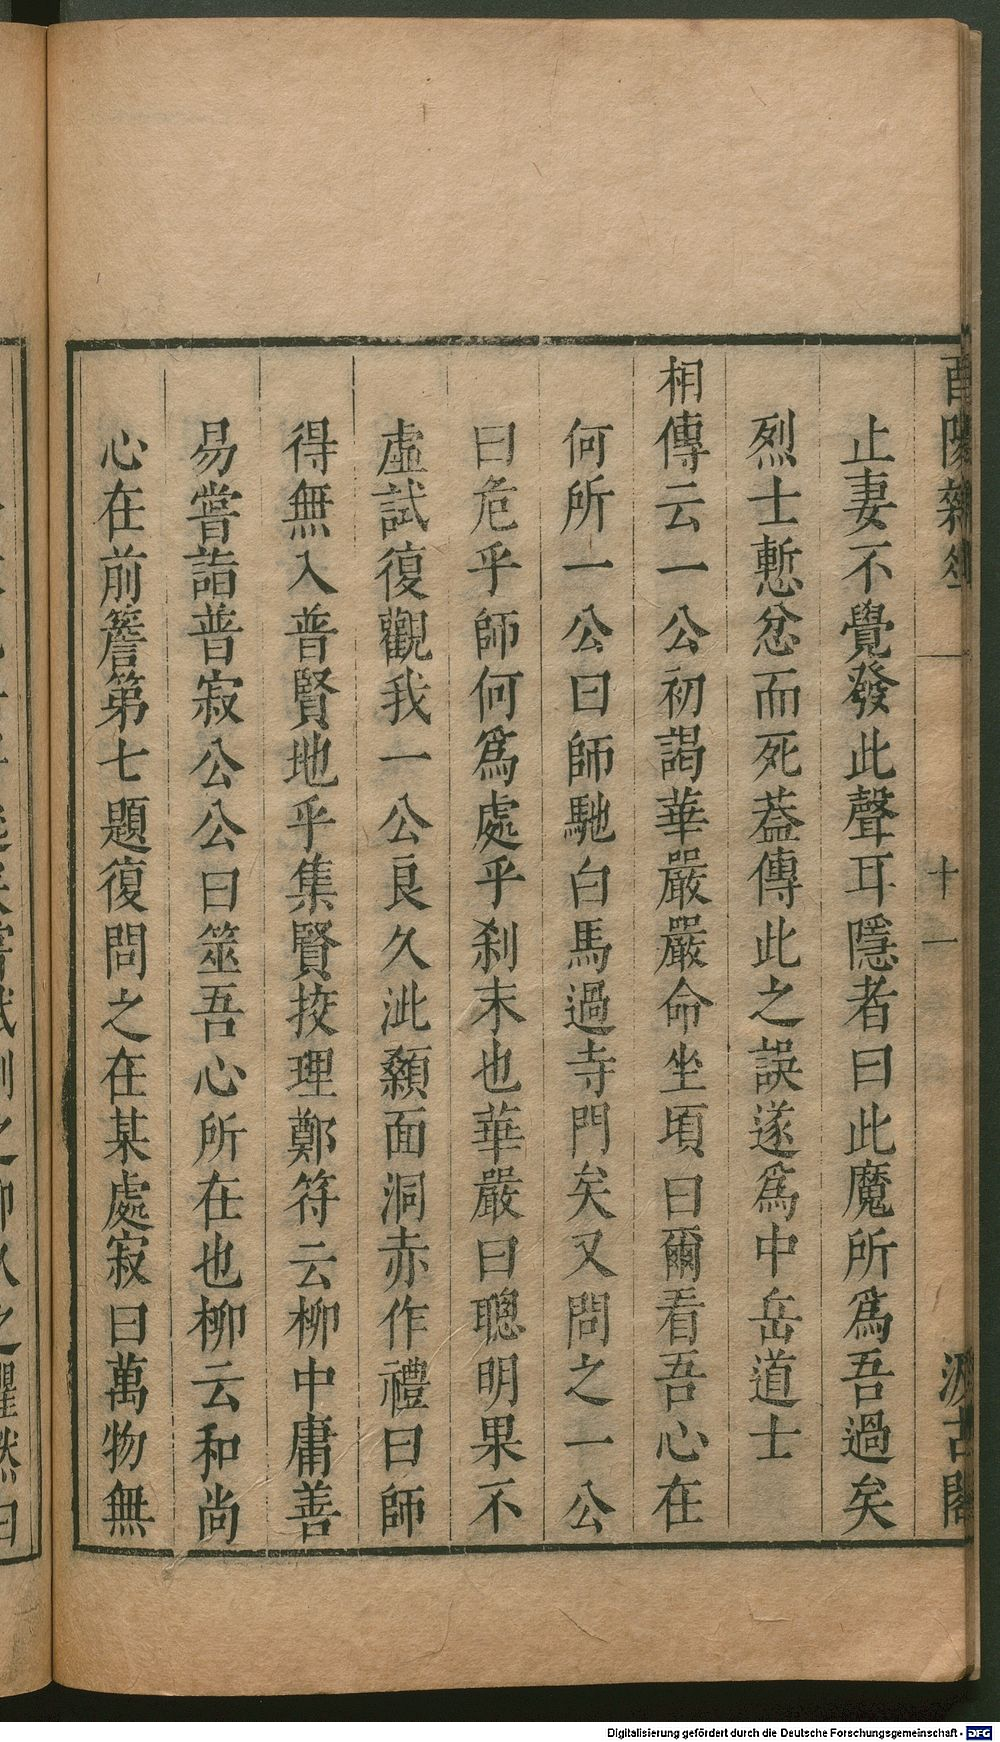 止妻不覺發此聲耳隱者曰此魔所爲吾過矣
烈士慙忿而死葢傳此之誤遂爲中岳道士
相傳云一公初謁華嚴嚴命坐頃曰爾看吾心在
何所一公曰師馳白馬過寺門矣又問之一公
曰危乎師何爲處乎刹末也華嚴曰聰明果不
虛試復觀我一公良久泚顙面洞赤作禮曰師
得無入普賢地乎集賢挍理鄭符云柳中庸善
易嘗詣普寂公公曰筮吾心所在也柳云和尚
心在前簷第七題復問之在某處寂曰萬物無
十一
Digitalisierung gefördert durch die Deutsche Forschungsgemeinschaft - DFG